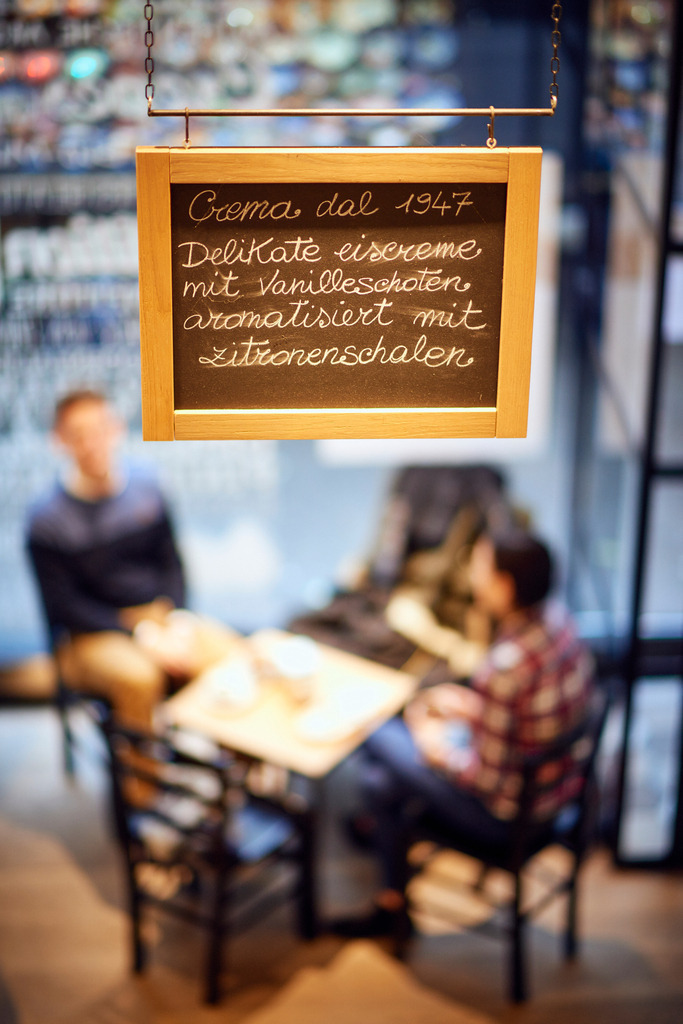 Crema dal 1947
Delikate eiscreme
mit Vanilleschoten
aromatisiert mit
zitronenschalen